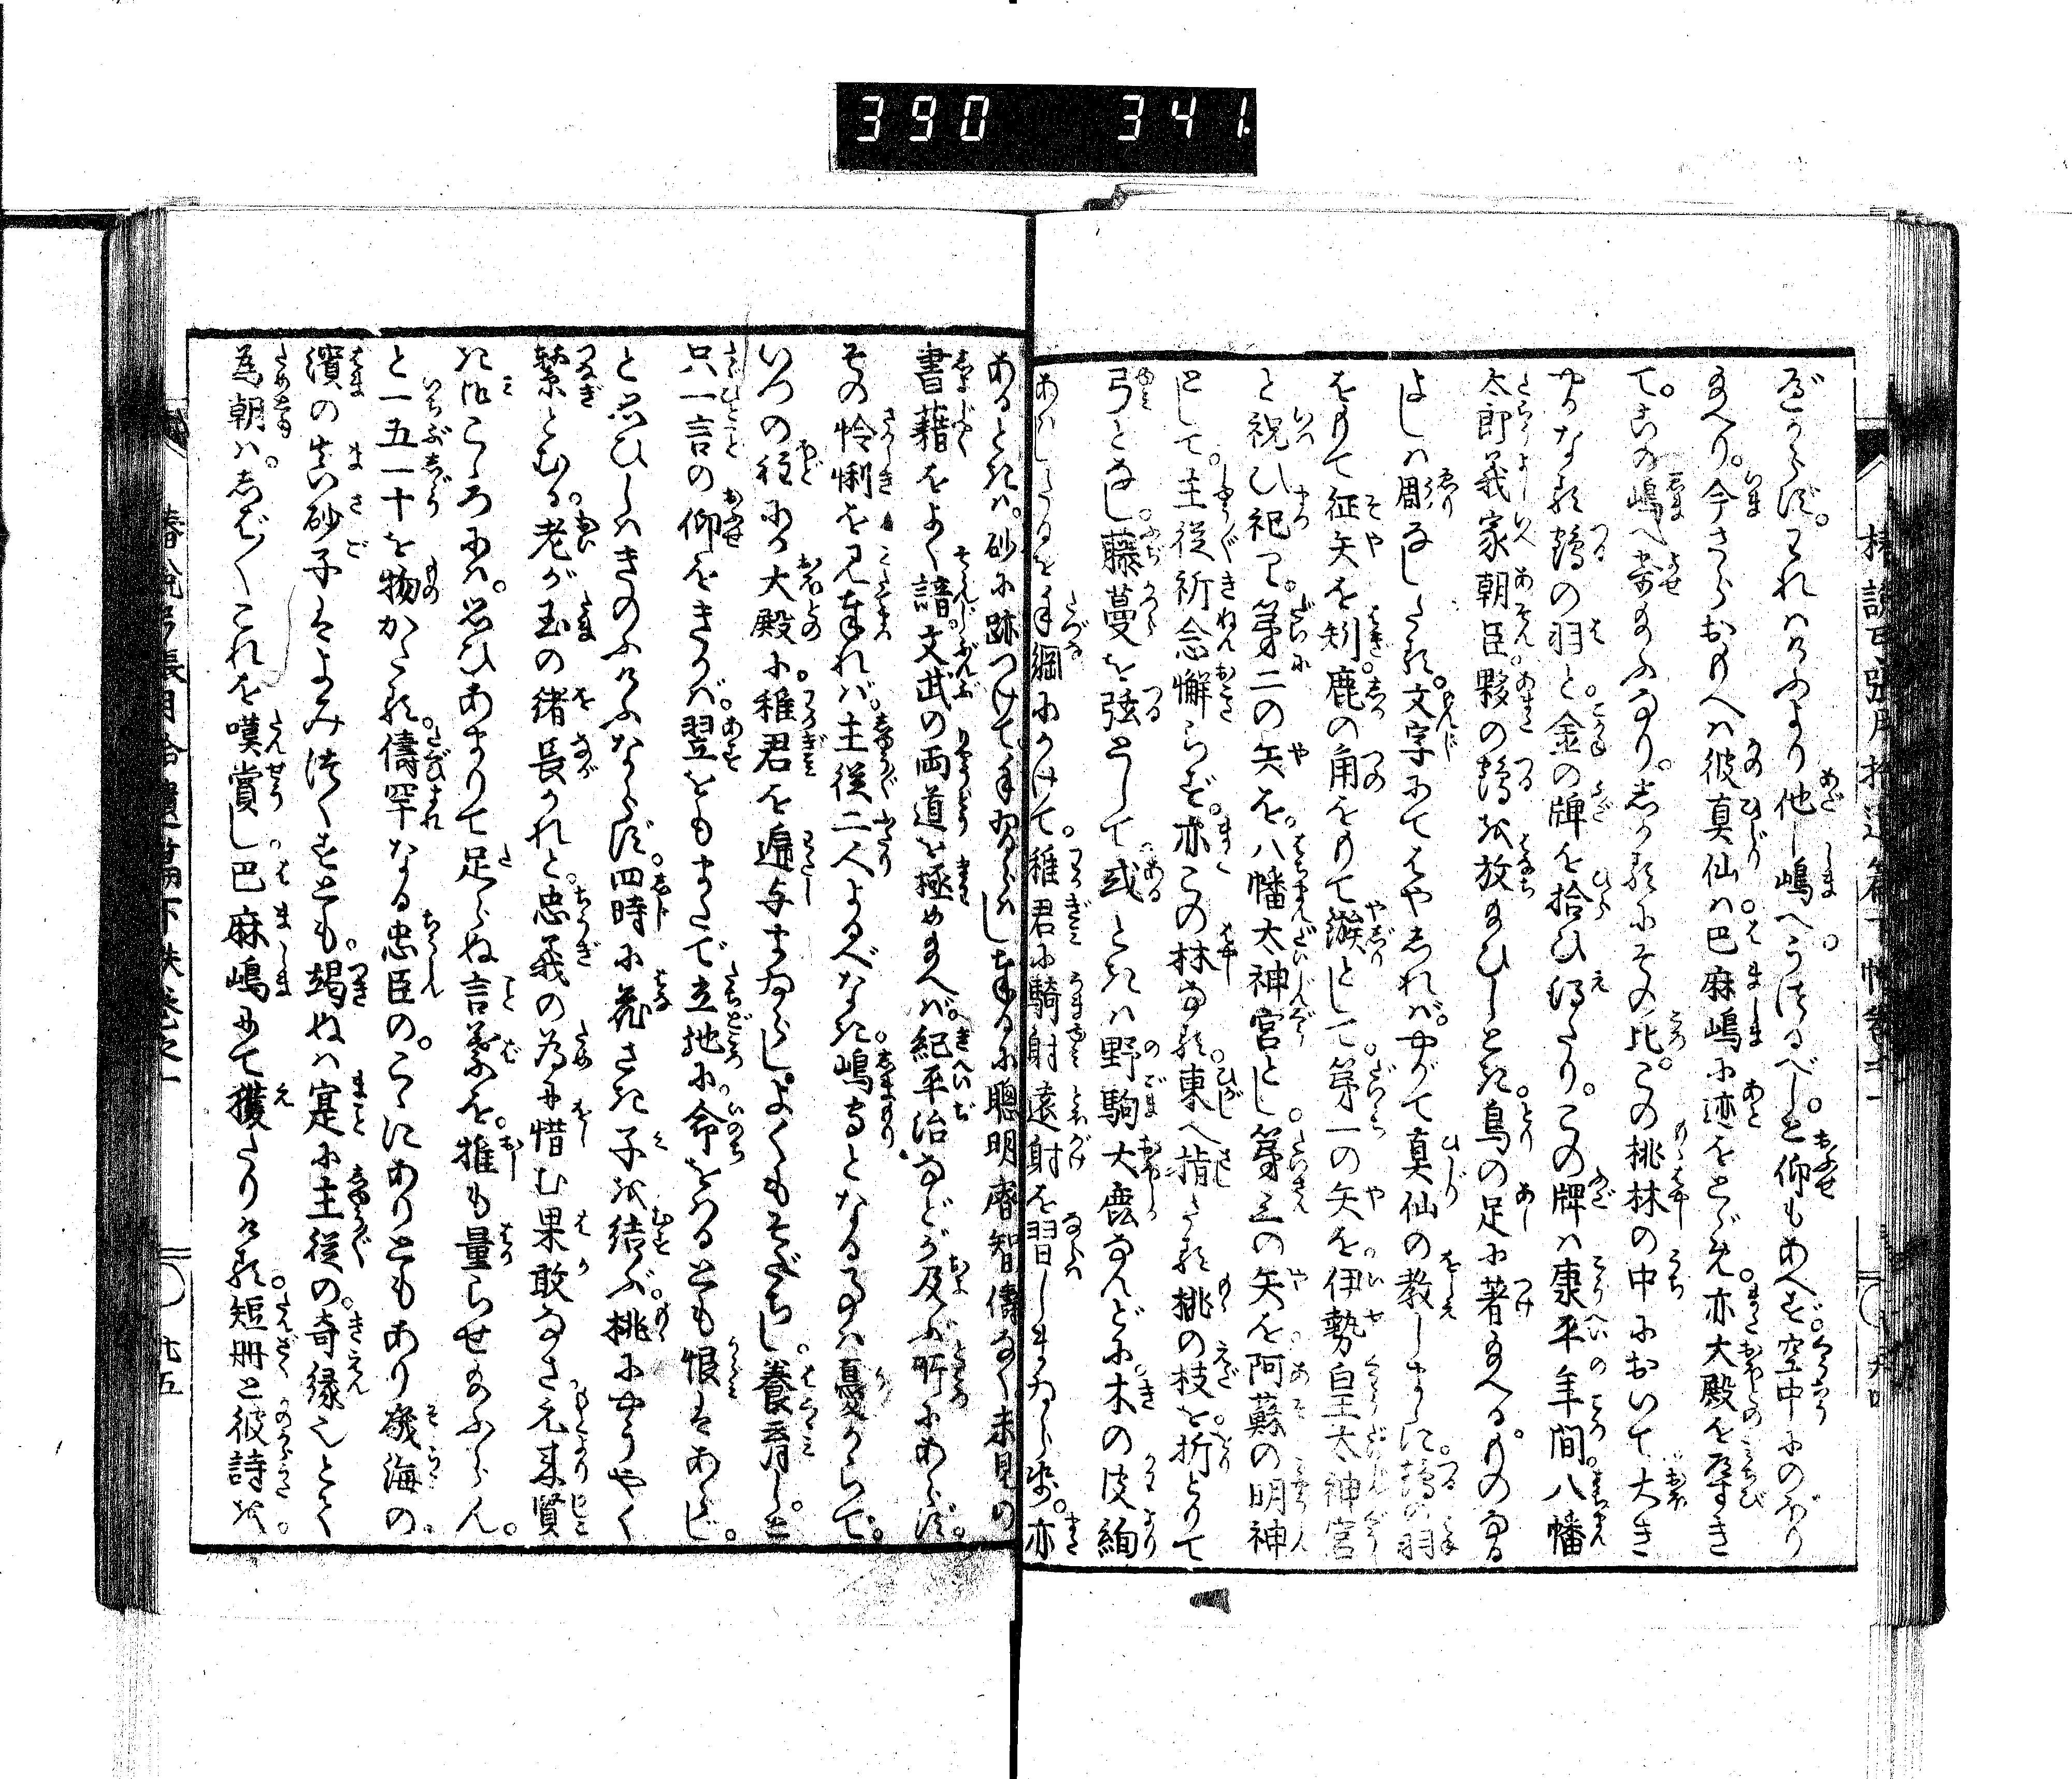 390 341
がらず。われハけふより他し嶋へうつるべし。と仰もあへず。空中にのぼり
給へり。今さらおもへハ彼真仙ハ巴麻嶋に迹をとゞめ。亦大殿を導き
て。この嶋へ来給ふなり。しかるにその比。この桃林の中において大き
やかなる鶴の羽と。金の牌を拾ひ得たり。この牌ハ康平年間。八幡
太郎義家朝臣。夥の鶴を放給ひしとき。鳥の足に著給へる。ものなる
よしハ彫なしたる。文字にてはやしれバ。やがて真仙の教しまに〳〵。鶴の羽
をもて征矢を矧。鹿の角をもて鏃として。第一の矢を伊勢皇太神宮
と祝ひ祀り。第二の矢を。八幡太神宮とし。第三の矢を阿蘇の明神
として。主従祈念懈らず。亦この林なる。東へ指たる桃の枝を折とりて
弓となし。藤蔓を弦として。或ときハ野駒大鹿なんどに。木の皮絢
あハしたるを手綱にかけて。稚君に騎射遠射を習しまゐらせ。亦
あるときハ。砂に跡つけて。手習ハしまゐらするに聡明睿智儔なく未見の
書藉をよく諳。文武の両道を極め給へバ。紀平治などが及ぶ所にあらず。
その怜悧を見奉れバ。主従二人よるべなき。嶋守となる事ハ憂からで。
いつの程にか大殿に。稚君を遍与まゐらし。よくもそだちし。養育し。と
只一言の仰をきかバ。翌をもまたで立地に。命をハるとも恨ハあらじ。
と思ひしハきのふけふならず。四時に花さき子を結ぶ。桃にやうやく
繋とむる。老が玉の緒長かれと。忠義の為に惜む果敢なさ。元来賢
き御こゝろにハ。思ひあまりて足らぬ言葉を。推も量らせ給ふらん。
と一五一十を物がたる。儔罕なる忠臣の。こゝにありともあり磯海の
濱の真砂子ハよみ尽くすとも。竭ぬハ寔に主従の。奇縁也とて
為朝ハ。しば〳〵これを嘆賞し巴麻嶋にて獲たりける。短冊と彼詩を。